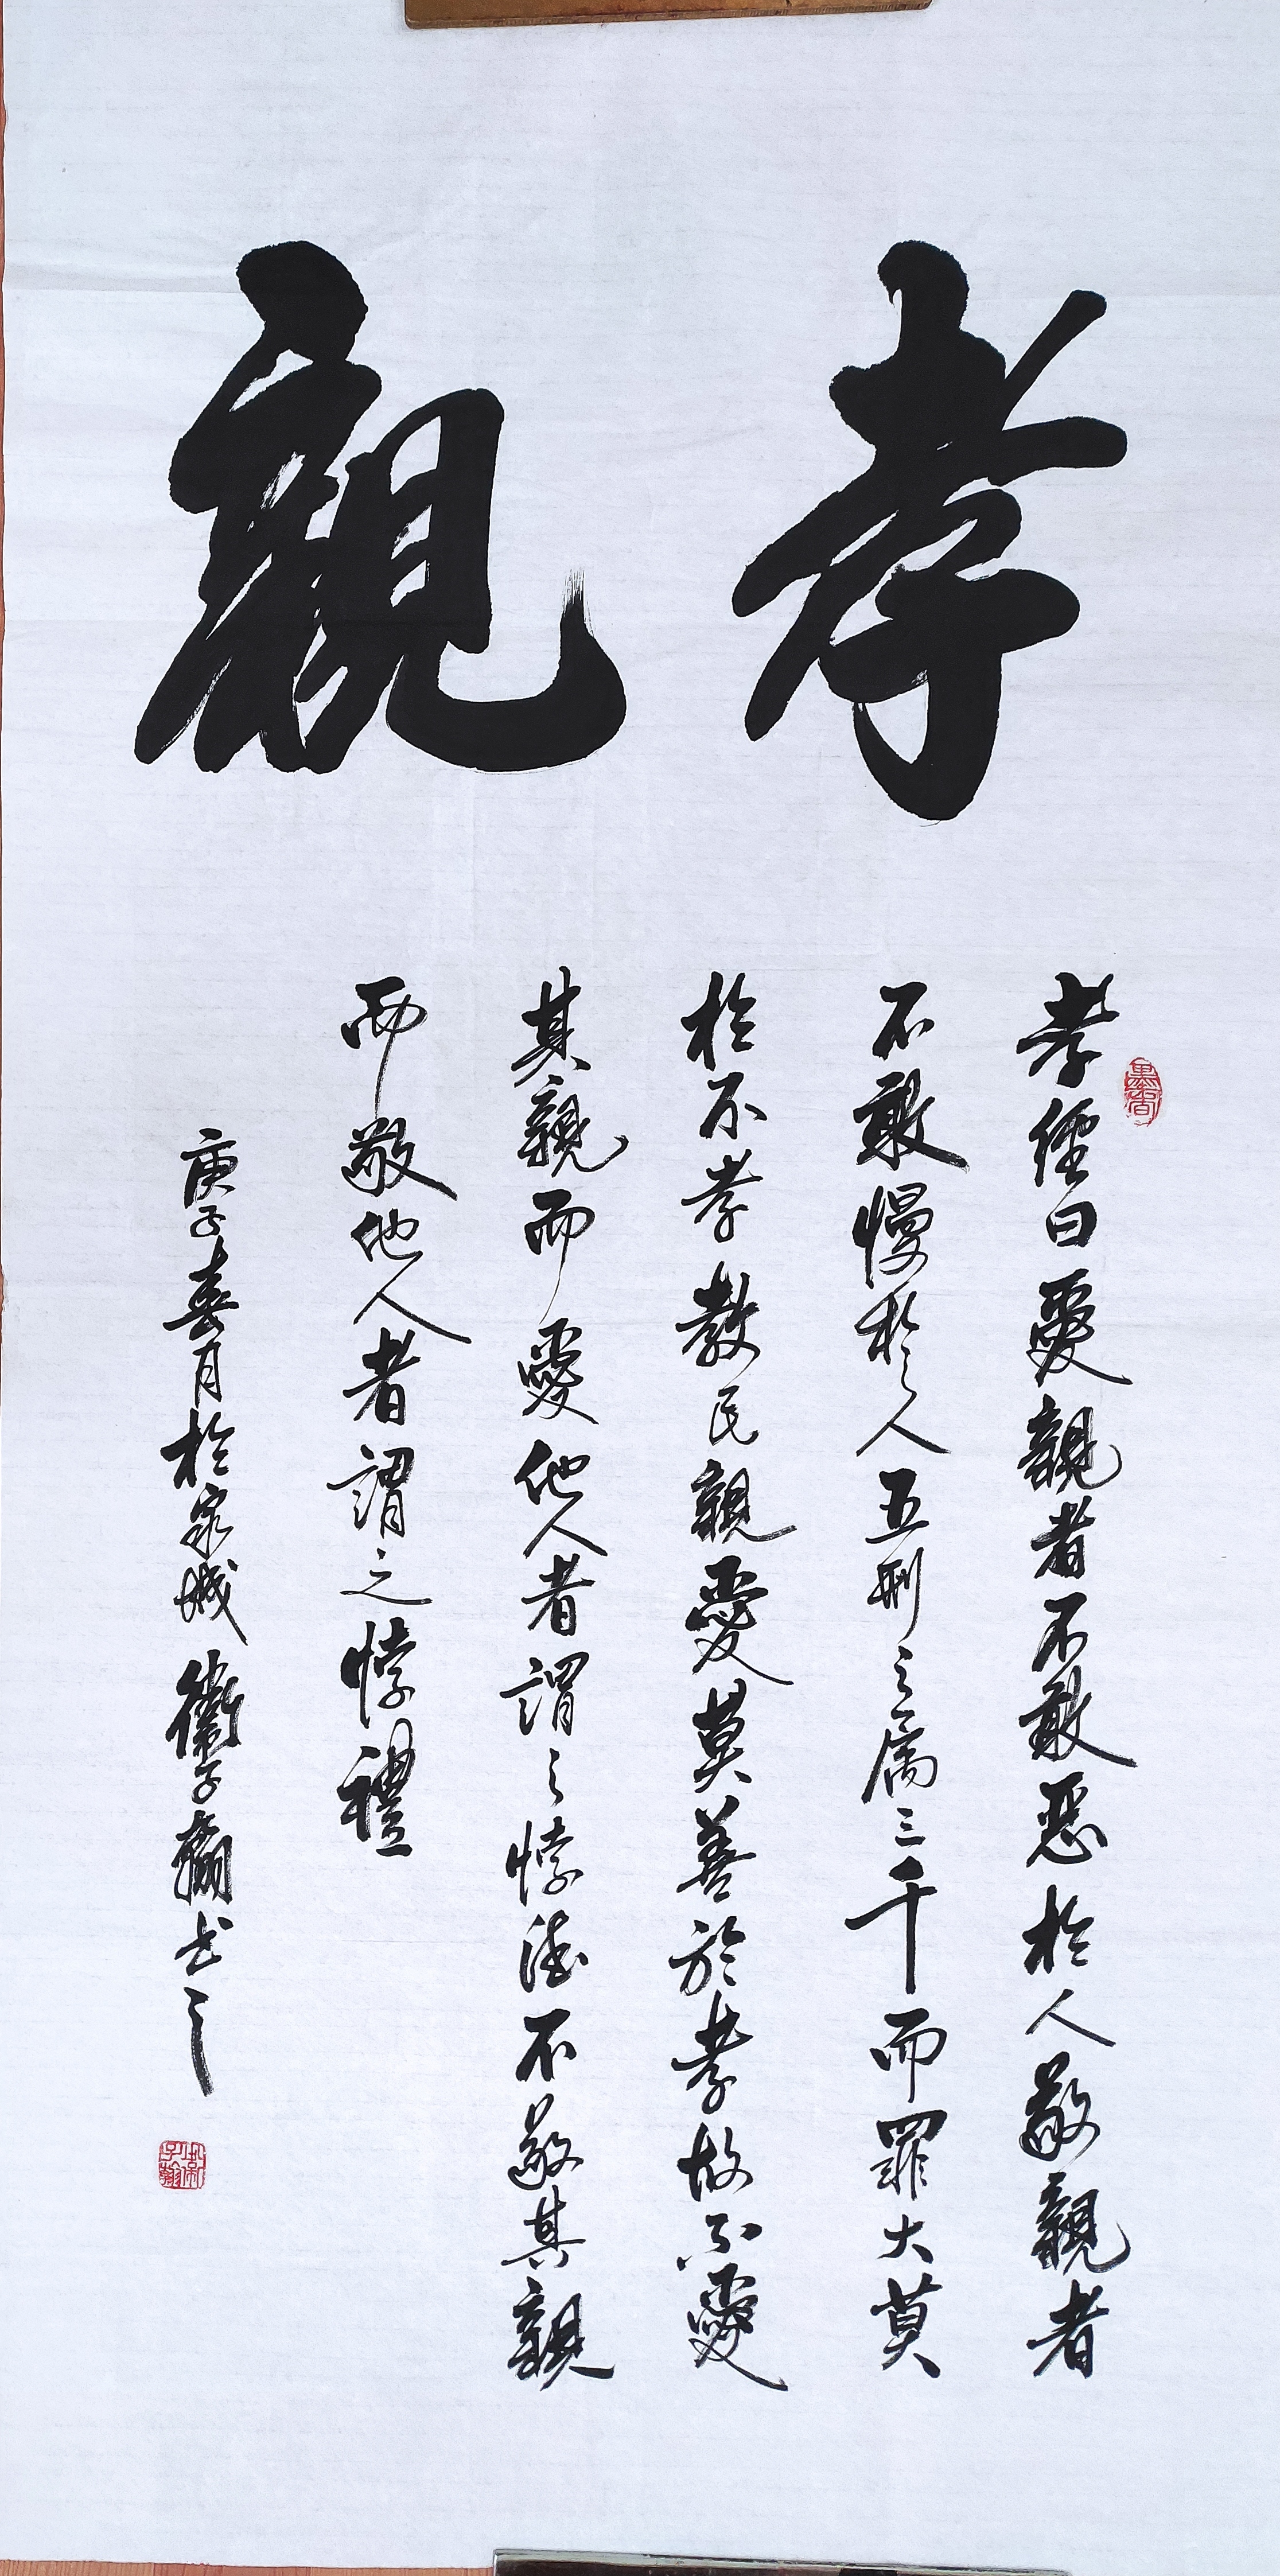 孝親
孝經曰愛親者不敢惡於人敬親者
不敢慢於人五刑之屬三千而罪大莫
於不孝教民親愛莫善於孝故不愛
其親而愛他人者謂之悖德不敬其親
而敬他人者謂之悖禮
庚子春月於泉城衛子翰書之
墨香